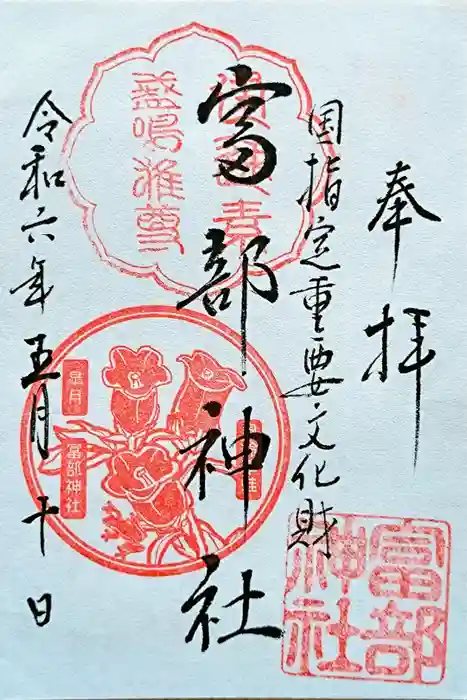 奉拝
国指定重要文化財
富部神社
令和六年五月十日
盛鳴雅尊
皐月
冨部神社
富部神社